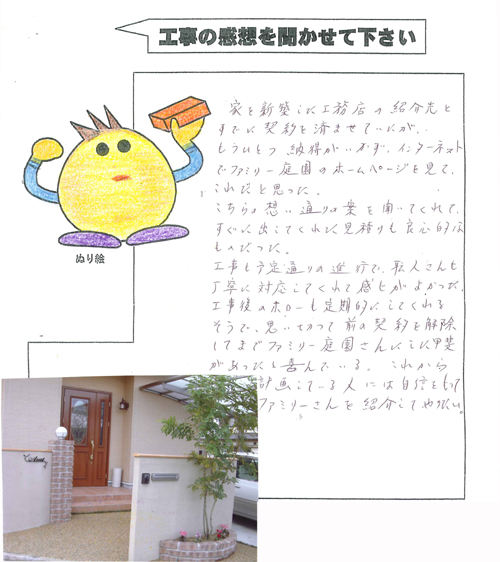 工事の感想を聞かせて下さい
家を新築した工務店の紹介先と
すでに契約を済ませていたが、
もうひとつ納得がいかず、インターネット
でファミリー庭園のホームページを見て、
これだと思った。
こちらの想い通りの案を聞いてくれて、
すぐに出してくれた見積りも良心的な
ものだった。
工事も予定通りの進行で、職人さんも
丁寧に対応してくれて感じがよかった。
工事後のフォローも定期的にしてくれる
そうで、思い切って前の契約を解除
してまでファミリー庭園さんにした甲斐
があったと喜んでいる。これから
計画している人には自信をもって
ファミリーさんを紹介してやりたい。
ぬり絵